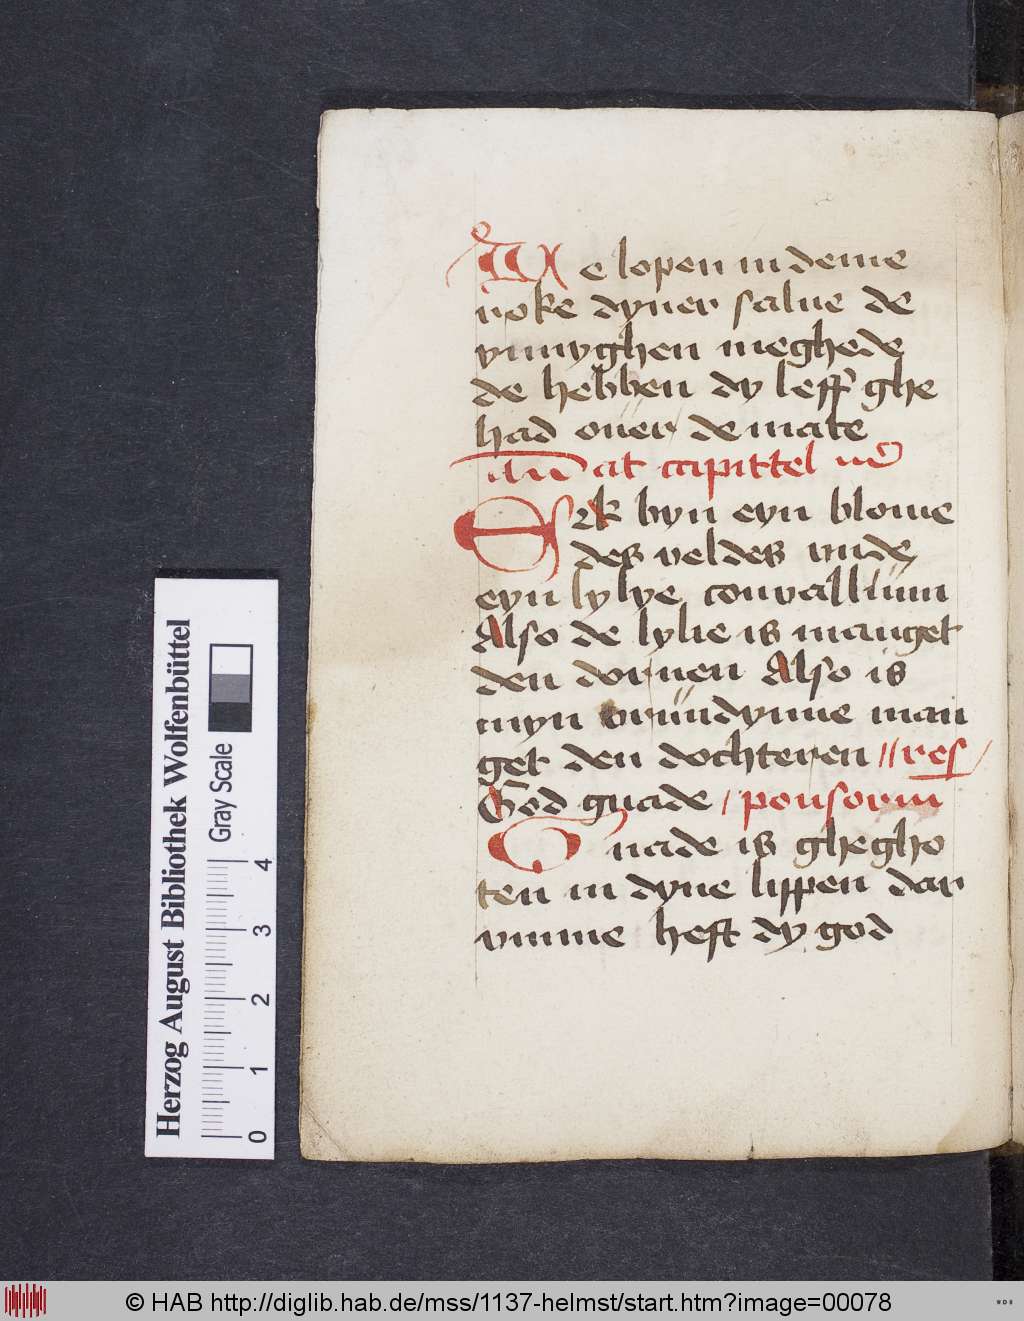 We lopen in deme
roke dyner salue de
ynnyghen meghede
de hebben dy leff ghe
had ouer de mate
at capittel
Ek byn eyn blome
des veldes vnde
eyn lylye conuallium
Also de lylie is manget
den dornen Also is
myn vrundynne man
get den dochteren // res
God gnade / ponsorium
Gnade is ghegho
ten in dyne lippen dar
vmme heft dy god
Herzog August Bibliothek Wolfenbüttel
Gray Scale
0 1 2 3 4
© HAB http://diglib.hab.de/mss/1137-helmst/start.htm?image=00078